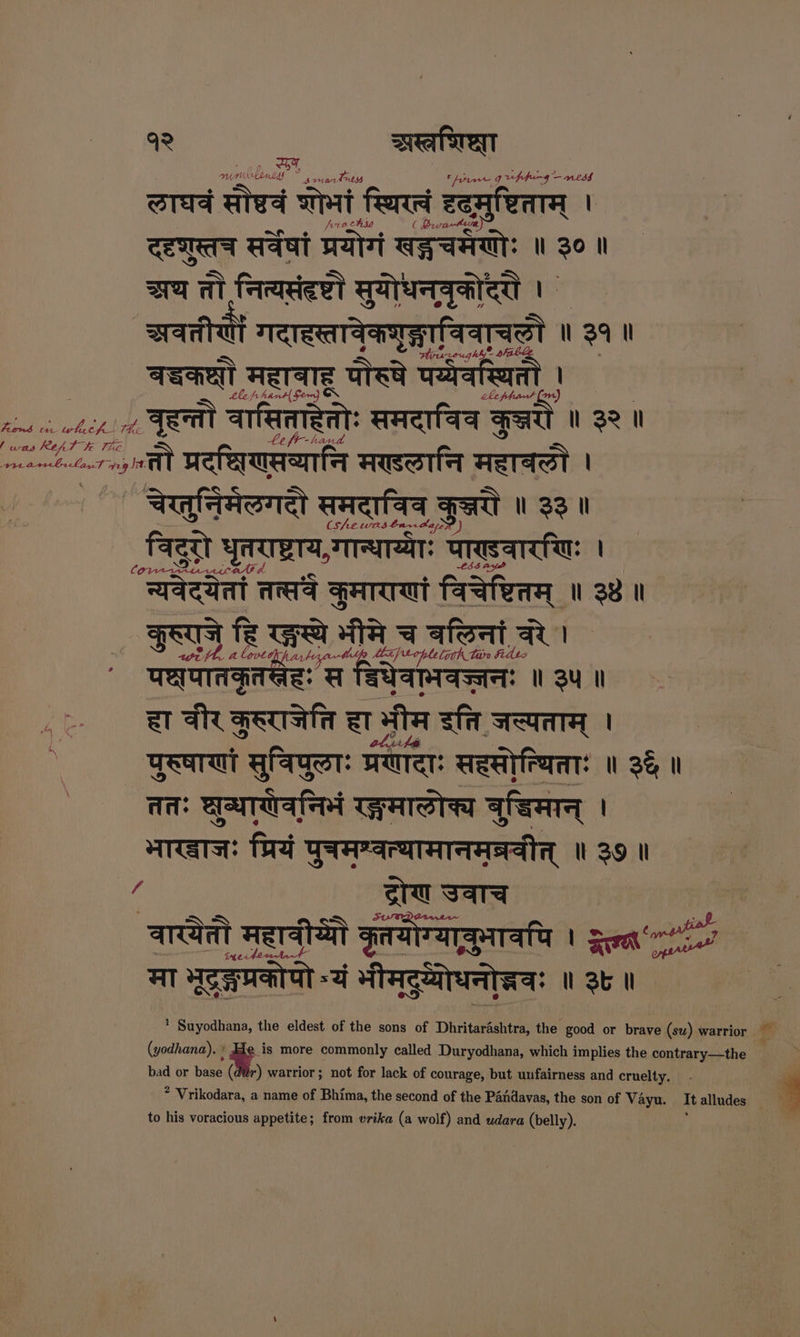 १२ अस्त्रशिक्षा
smartness firm gripping-ness
लाघवं सौष्ठवं शोभां स्थिरत्वं दृढमुष्टिताम् ।
ददृशुस्तत्र सर्वेषां प्रयोगं खङ्गचर्मणोः ॥ ३० ॥
अथ तौ नित्यसंहृष्टौ सुयोधनवृकोदरौ ।
अवतीर्णौ गदाहस्तावेकशृङ्गाविवाचलौ ॥ ३१ ॥
बद्धकक्षौ महाबाहू पौरुषे पर्य्यवस्थितौ ।
elephant (fem) elephant (m)
वृहन्तौ वासिताहेतोः समदाविव कुञ्जरौ ॥ ३२ ॥
left-hand
तौ प्रदक्षिणसव्यानि मण्डलानि महाबलौ ।
चेरतुर्निर्मलगदौ समदाविव कुञ्जरौ ॥ ३३ ॥
विदुरो धृतराष्ट्राय गान्धार्य्याः पाण्डवारणिः ।
न्यवेदयेतां तत्सर्वं कुमाराणां विचेष्टितम् ॥ ३४ ॥
कुरुराजे हि रङ्गस्थे भीमे च बलिनां वरे ।
पक्षपातकृतस्नेहः स द्विधेवाभवज्जनः ॥ ३५ ॥
हा वीर कुरुराजेति हा भीम इति जल्पताम् ।
पुरुषाणां सुविपुलाः प्रणादाः सहसोत्थिताः ॥ ३६ ॥
ततः क्षुब्धार्णवनिभं रङ्गमालोक्य बुद्धिमान् ।
भारद्वाजः प्रियं पुत्रमश्वत्थामानमब्रवीत् ॥ ३७ ॥
द्रोण उवाच
वारयैतौ महावीर्य्यौ कृतयोग्यावुभावपि ।
मा भूद्रङ्गप्रकोपो ऽयं भीमदुर्य्योधनोद्भवः ॥ ३८ ॥
¹ Suyodhana, the eldest of the sons of Dhritaráshtra, the good or brave (su) warrior
(yodhana). He is more commonly called Duryodhana, which implies the contrary—the
bad or base (dur) warrior; not for lack of courage, but unfairness and cruelty.
² Vrikodara, a name of Bhíma, the second of the Pándavas, the son of Váyu. It alludes
to his voracious appetite; from vrika (a wolf) and udara (belly).